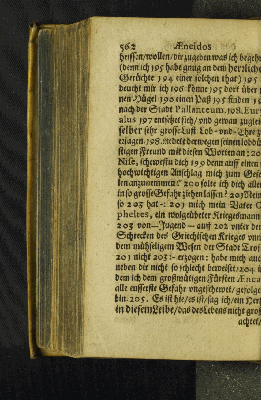 562 Æneidos
heissen/wollen/dir zugeben was ich begehre
(denn ich 195 habe gnug an dem herzliche
Gerüchte 194 einer solchen that) 195
deucht mir ich 196 könne 195 dort über
nen Hügel 190 einen Paß 195 finden
nach der Stadt Pallanteum. 198. Eury
alus 197 entsetzet sich/ und gewan zugleich
selber sehr grosse Lust Lob- und Ehre zu
erjagen. 198. redete derwegen seinen
stigen Freund mit diesen Worten an: 20
Nise, schewestu dich 199 denn auff einen
hochwichtigen Anschlag mich zum Gese
len anzunemmen? 200 solte ich dich allein
in so grosse Gefahr ziehen lassen? 203 Mein
so 203 hat: 201 mich mein Vater O
pheltes, ein wolgeübeter Kriegesmann
203 von Jugend auff 202 unter den
Schrecken des Griechischen Krieges un
dem mühseligem Wesen der Stadt Tro
201 nicht 203 erzogen: habe mich auch
neben dir nicht so schlecht beweiset/ 204
dem ich dem großmütigen Fürsten Ænea
alle eusserste Gefahr ungeschewet/ gefolget
bin. 205. Es ist hie/ es ist/ sag ich/ ein Her
in diesem Leibe/ das des Lebens nicht groß
achtet/